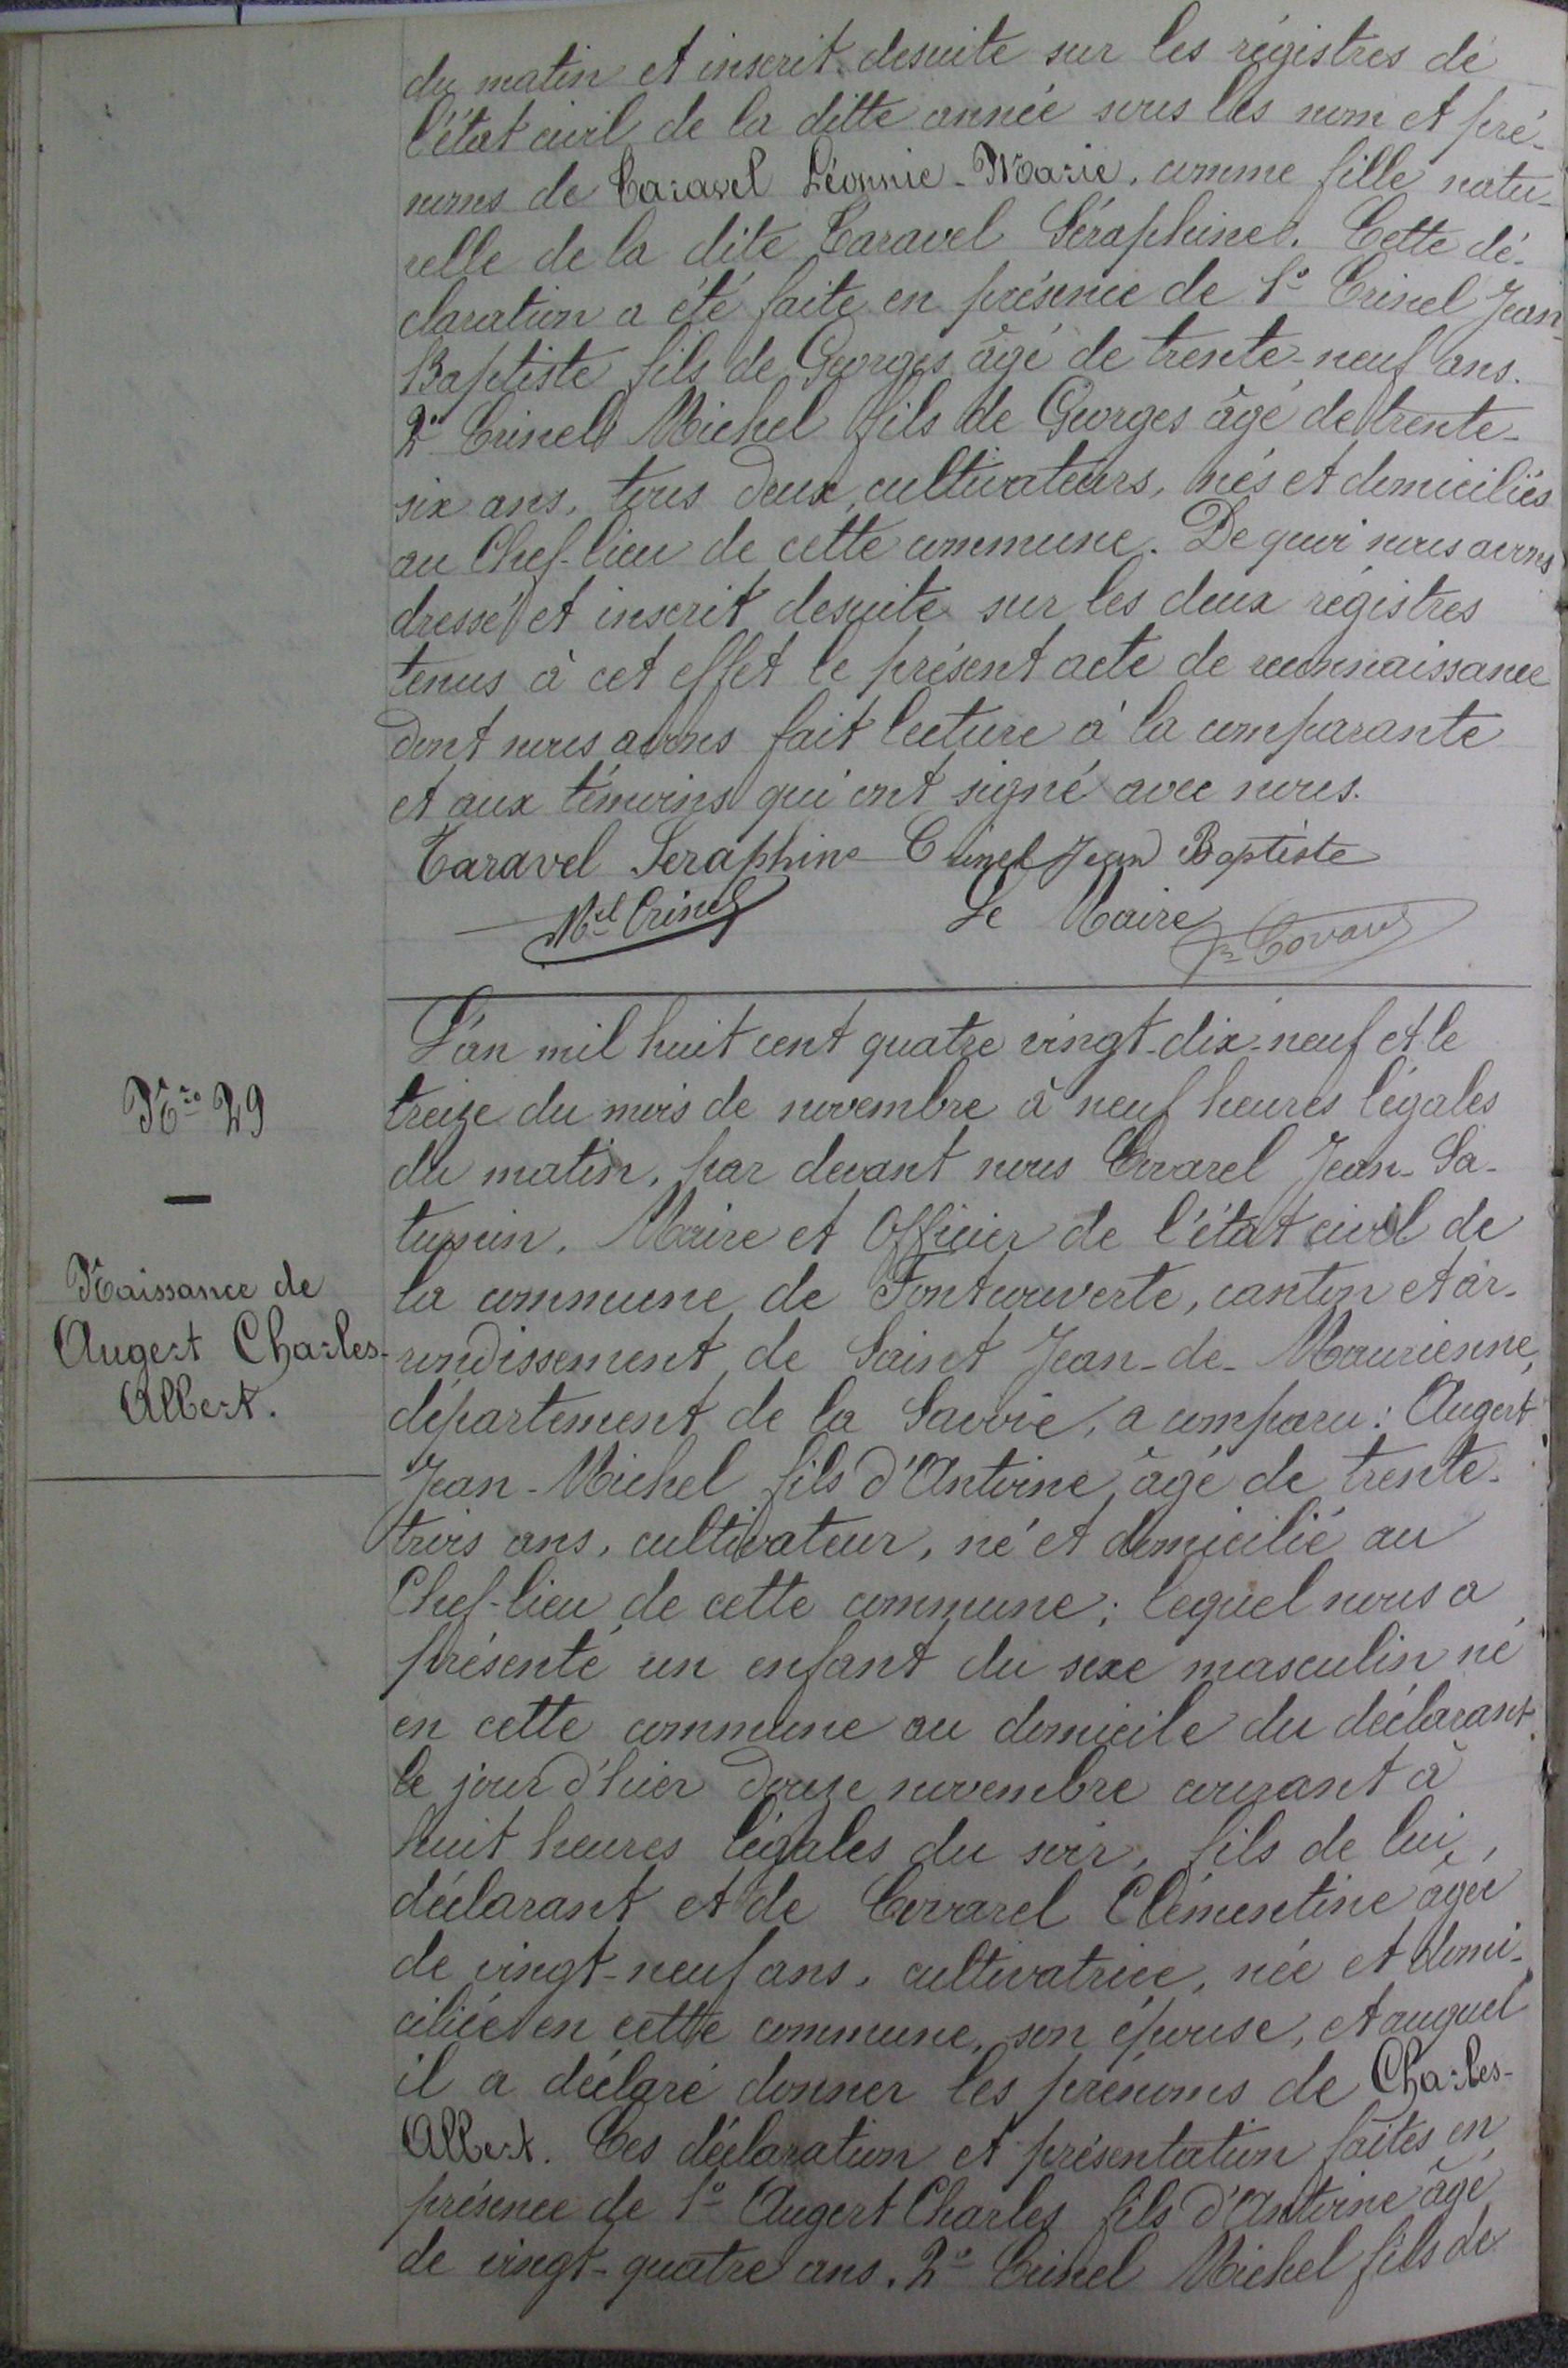 du matin et inscrit desuite sur les régistres de
l'état civil de la ditte année sous les nom et pré-
noms de Taravel Léonnie-Marie, comme fille natu-
relle de la dite Taravel Séraphine. Cette dé-
claration a été faite en présence de 1° Crinel Jean-
Baptiste fils de Georges âgé de trente-neuf ans.
2° Crinel Michel fils de Georges âgé de trente-
six ans, tous deux cultivateurs, nés et domiciliés
au Chef-lieu de cette commune. De quoi nous avons
dressé et inscrit desuite sur les deux régistres
tenus à cet effet le présent acte de reconnaissance
dont nous avons fait lecture à la comparante
et aux témoins qui ont signé avec nous.
Taravel Seraphine Crinel Jean Baptiste
Mel Crinel Le Maire
L'an mil huit cent quatre vingt-dix-neuf et le
treize du mois de novembre à neuf heures légales
du matin, par devant nous Covarel Jean-Sa-
turnin, Maire et Officier de l'état civil de
la commune de Fontcouverte, canton et ar-
rondissement de Saint Jean-de-Maurienne,
département de la Savoie, a comparu: Augert
Jean-Michel fils d'Antoine, âgé de trente-
trois ans, cultivateur, né et domicilié au
Chef-lieu de cette commune; lequel nous a
présenté un enfant du sexe masculin né
en cette commune au domicile du déclarant
le jour d'hier douze novembre courant à
huit heures légales du soir, fils de lui,
déclarant et de Covarel Clémentine âgée
de vingt-neuf ans, cultivatrice, née et domi-
ciliée en cette commune, son épouse, et auquel
il a déclaré donner les prénoms de Charles-
Albert. Ces déclaration et présentation faites en
présence de 1° Augert Charles fils d'Antoine âgé
de vingt-quatre ans. 2° Crinel Michel fils de
Nro 29
Naissance de
Augert Charles-
Albert.